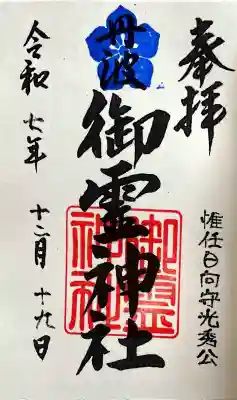 奉拝
惟任日向守光秀公
丹波
御霊神社
御霊神社
令和七年十二月十九日